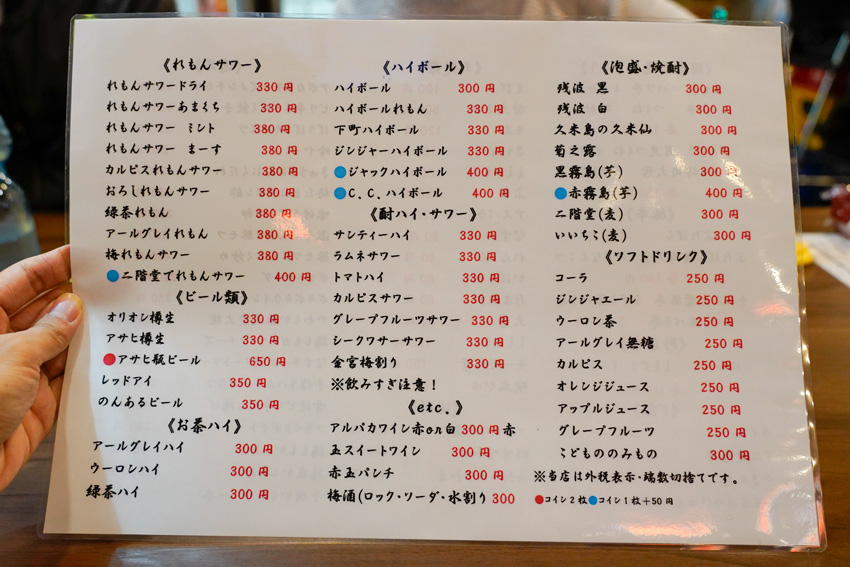 《れもんサワー》
れもんサワードライ 330 円
れもんサワーあまくち 330 円
れもんサワー ミント 380 円
れもんサワー まーす 380 円
カルピスれもんサワー 380 円
おろしれもんサワー 380 円
緑茶れもん 380 円
アールグレイれもん 380 円
梅れもんサワー 380 円
二階堂でれもんサワー 400 円
《ビール類》
オリオン樽生 330 円
アサヒ樽生 330 円
アサヒ瓶ビール 650 円
レッドアイ 350 円
のんあるビール 350 円
《お茶ハイ》
アールグレイハイ 300 円
ウーロンハイ 300 円
緑茶ハイ 300 円
《ハイボール》
ハイボール 300 円
ハイボールれもん 330 円
下町ハイボール 330 円
ジンジャーハイボール 330 円
ジャックハイボール 400 円
C.C.ハイボール 400 円
《酎ハイ・サワー》
サンティーハイ 330 円
ラムネサワー 330 円
トマトハイ 330 円
カルピスサワー 330 円
グレープフルーツサワー 330 円
シークワサーサワー 330 円
金宮梅割り 330 円
※飲みすぎ注意！
《etc.》
アルパカワイン赤or白 300 円 赤
玉スイートワイン 300 円
赤玉パンチ 300 円
梅酒(ロック・ソーダ・水割り 300
《泡盛・焼酎》
残波 黒 300 円
残波 白 300 円
久米島の久米仙 300 円
菊之露 300 円
黒霧島(芋) 300 円
赤霧島(芋) 400 円
二階堂(麦) 300 円
いいちこ(麦) 300 円
《ソフトドリンク》
コーラ 250 円
ジンジャエール 250 円
ウーロン茶 250 円
アールグレイ無糖 250 円
カルピス 250 円
オレンジジュース 250 円
アップルジュース 250 円
グレープフルーツ 250 円
こどもののみもの 300 円
※当店は外税表示・端数切捨てです。
コイン2枚 コイン1枚+50円